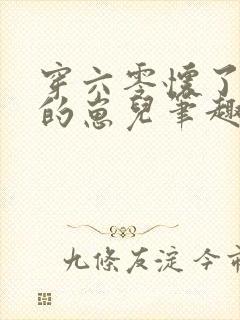 穿六零怀了
的崽兒筆趣
九條友淀 今市